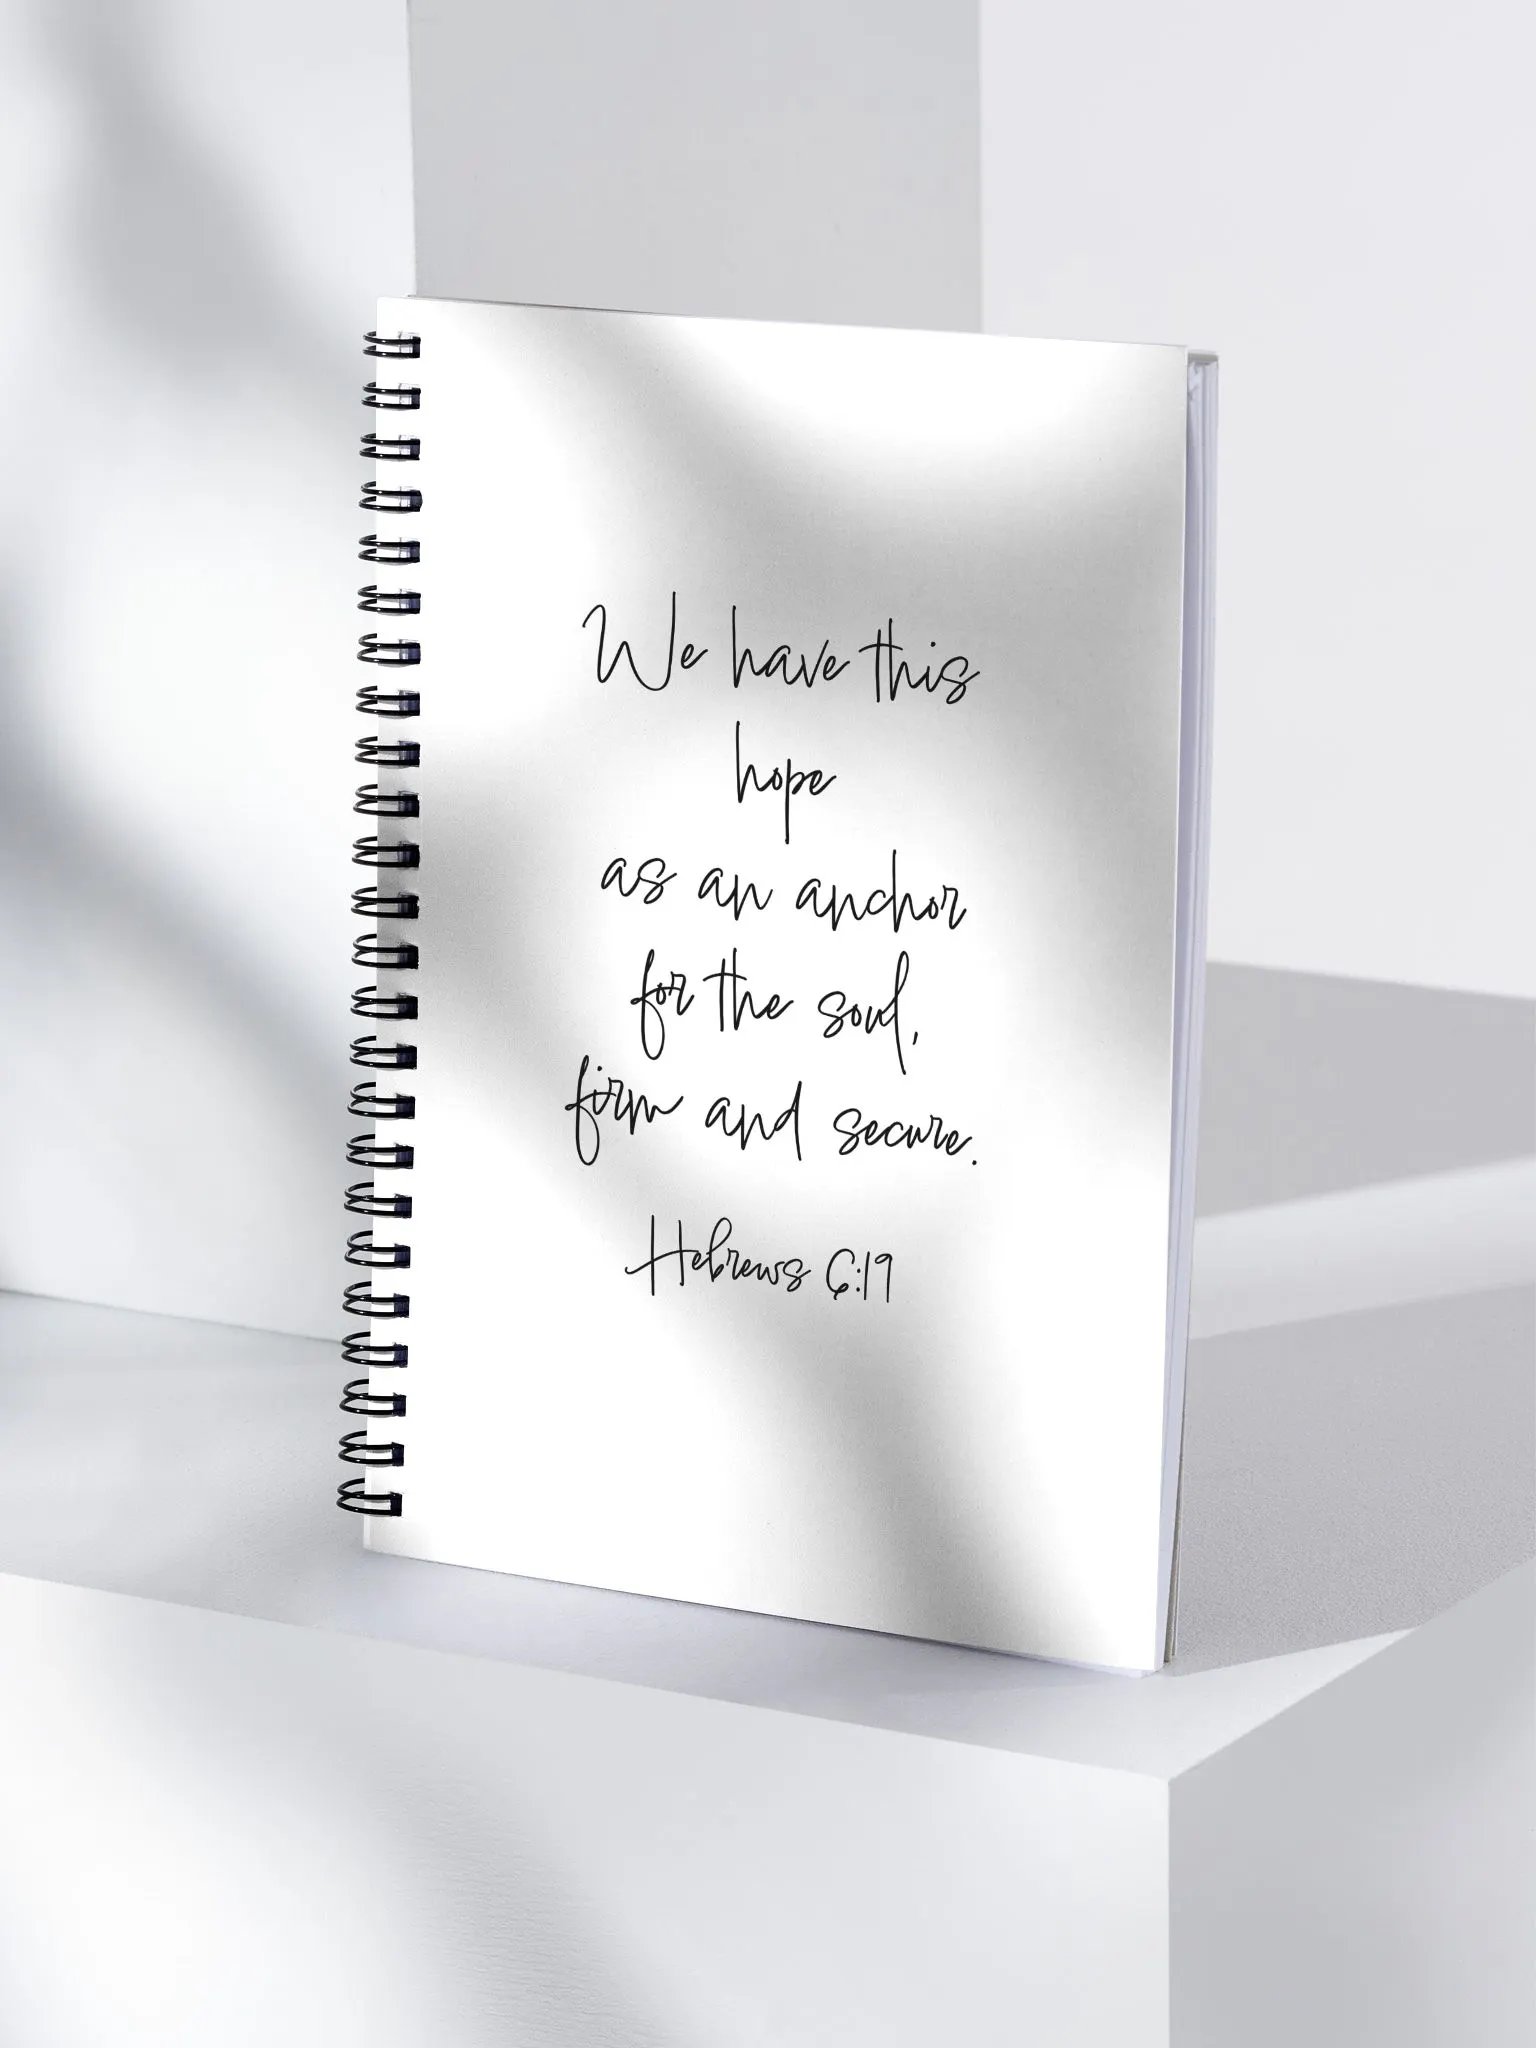 We have this
hope
as an anchor
for the soul,
firm and secure.
Hebrews 6:19